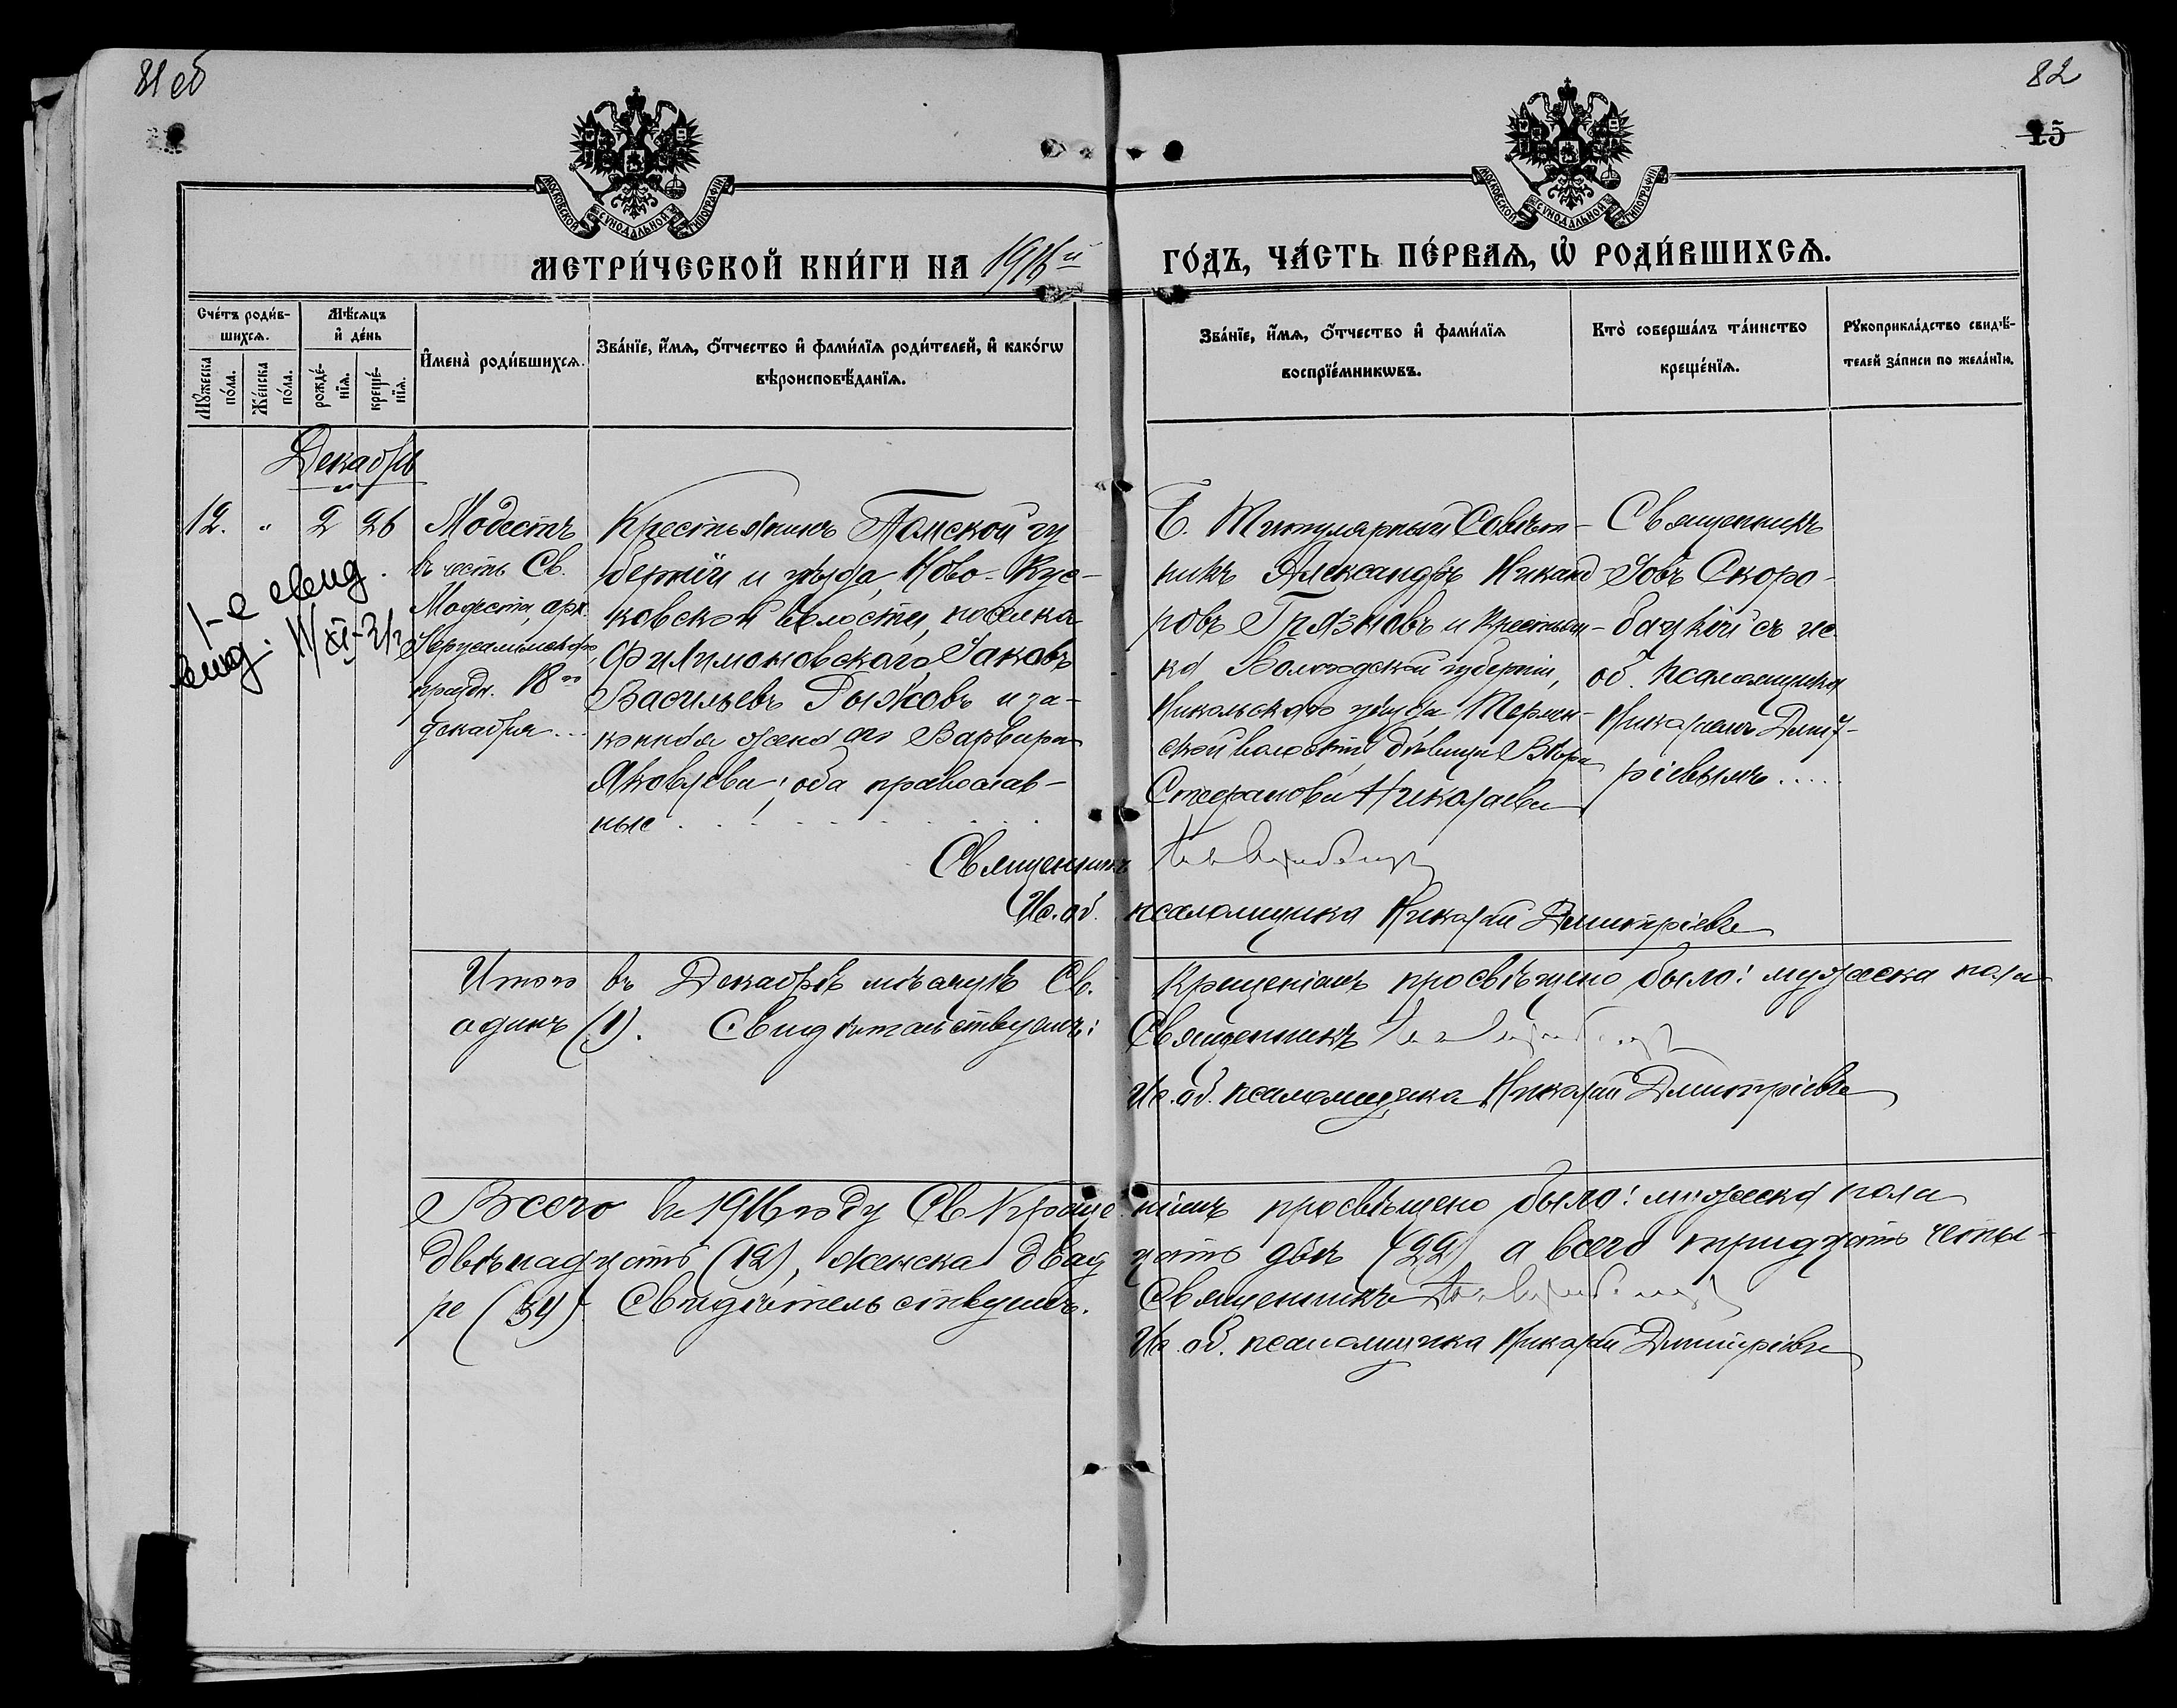 81 об
82
15
МОСКОВСКОЙ СѴНОДАЛЬНОЙ ТИПОГРАФІИ
МОСКОВСКОЙ СѴНОДАЛЬНОЙ ТИПОГРАФІИ
МЕТРИ́ЧЕСКОЙ КНИ́ГИ НА 1916й ГО́ДЪ, ЧА́СТЬ ПЕ́РВАѦ, Ѽ РОДИ́ВШИХСѦ.
Сче́тъ роди́в-
шихсѧ.
Мꙋ́жеска по́ла.
Же́нска по́ла.
Мѣ́сѧцъ
и҆ де́нь
рожде́-
нїѧ.
креще́-
нїѧ.
И҆мена̀ роди́вшихсѧ.
Зва́нїе, и҆́мѧ, ѻ҆́тчество и҆ фами́лїѧ роди́телей, и҆ како́гѡ
вѣроисповѣ́данїѧ.
Зва́нїе, и҆́мѧ, ѻ҆́тчество и҆ фами́лїѧ
воспрїе́мникѡвъ.
Кто̀ соверша́лъ та́инство
креще́нїѧ.
Рꙋкоприкла́дство свидѣ́-
телей за́писи по жела́нїю.
Декабрь
12. " 2 26
1-е
выд. 11/XI-21г
Модестъ
въ честь Св.
Модеста, арх.
Іерусалимскаго,
праздн. 18го
декабря...
Крестьянинъ Томской гу
берніи и уѣзда, Ново-Кус-
ковской волости, поселка
Филимоновскаго, Іаковъ
Васильевъ Рыжовъ и за-
конная жена его Варвара
Яковлева; оба православ-
ные
Б. Титулярный Совѣт-
никъ Александръ Никанд
ровъ Грязновъ и крестьян-
ка Вологодской губерніи,
Никольскаго уѣзда,
волости, дѣвица Вѣра
Стефанова Николаева
Священникъ
Іовъ Скоро-
бацкій съ ис.
об. псаломщика
Николаемъ Димит-
ріевымъ.....
Священникъ
Ис. об. псаломщика Николай Димитріевъ
Итого въ Декабрѣ мѣсяцѣ Св. Крещеніемъ просвѣщено было: мужеска пола
одинъ (1). Свидѣтельствуемъ: Священникъ
Ис. об. псаломщика Николай Димитріевъ
Всего въ 1916 году Св Крещеніемъ просвѣщено было: мужеска пола
двѣнадцать (12), женска двадцать двѣ (22) а всего тридцать четы-
ре (34). Свидѣтельствуемъ. Священникъ
Ис. об. псаломщика Николай Димитріевъ